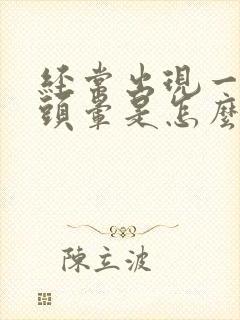 經常出現一
頭暈是怎麼
陳立波